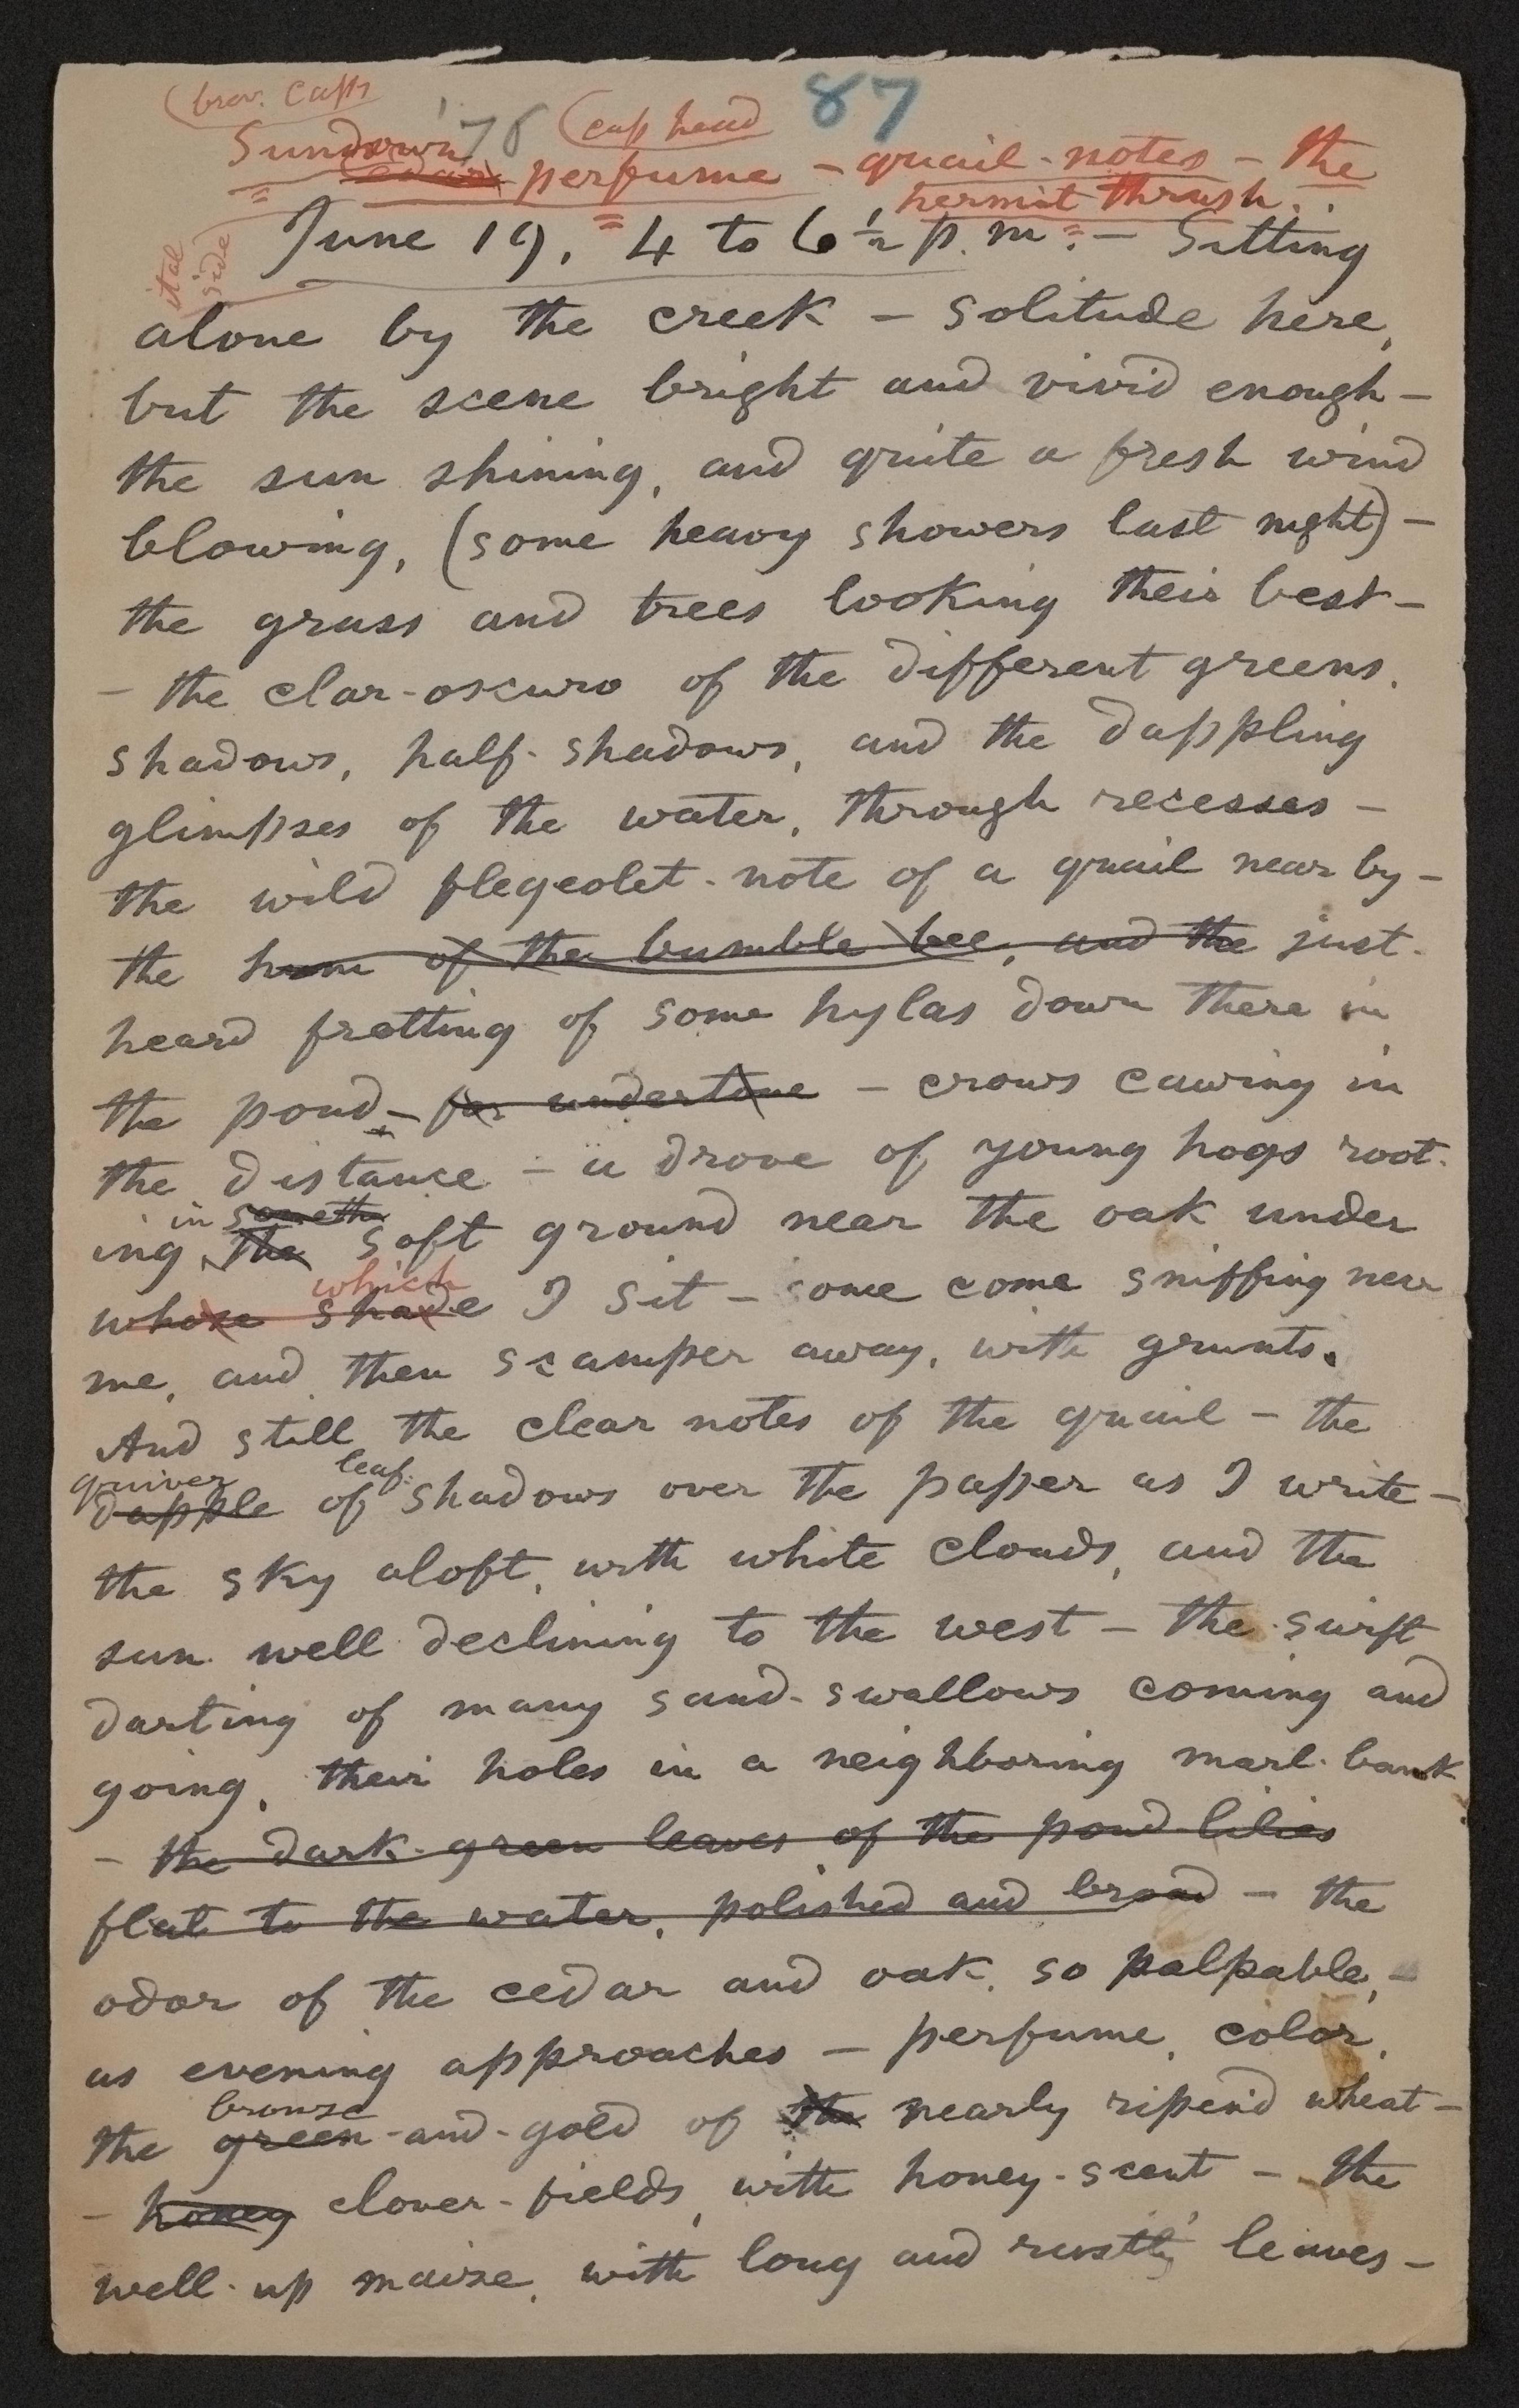 (brev. caps
'76 (cap head 87
Sundown
cedar perfume – quail-notes – the
hermit thrush.
ital
side
June 19, 4 to 6½ p. m. – Sitting
alone by the creek – solitude here,
but the scene bright and vivid enough –
the sun shining, and quite a fresh wind
blowing, (some heavy showers last night) –
the grass and trees looking their best –
– the clar-oscuro of the different greens,
shadows, half-shadows, and the dappling
glimpses of the water, through recesses –
the wild flegeolet-note of a quail near by –
the hum of the bumble bee, and the just-
heard fretting of some hylas down there in
the pond – for undertone – crows cawing in
the distance – a drove of young hogs root-
in someth
ing the soft ground near the oak under
which
whose shade I sit – some come sniffing near
me, and then scamper away, with grunts.
And still the clear notes of the quail – the
quiver leaf-
dapple of shadows over the paper as I write –
the sky aloft, with white clouds, and the
sun well declining to the west – the swift
darting of many sand-swallows coming and
going, their holes in a neighboring marl-bank
– the dark-green leaves of the pond-lilies
flat to the water, polished and broad – the
odor of the cedar and oak, so palpable, –
as evening approaches – perfume, color,
bronze
the green-and-gold of the nearly ripen'd wheat –
– honey clover-fields, with honey-scent – the
well-up maize, with long and rustly leaves –